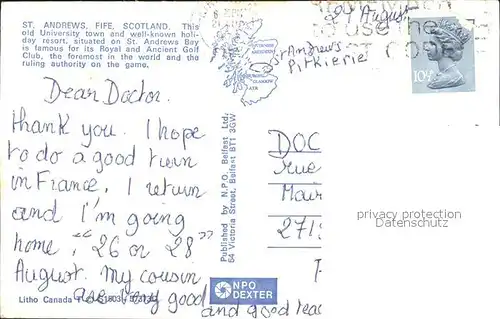 ST. ANDREWS, FIFE, SCOTLAND. This
old University town and well-known holi-
day resort, situated on St. Andrews Bay
is famous for its Royal and Ancient Golf
Club, the foremost in the world and the
ruling authority on the game.
24 August
use the
St Andrews
Pitkierie
10½P
Dear Doctor.
thank you. I hope
to do a good turn
in France. I return
and I'm going
home, "26 or 28"
August. My cousin
are very good and good
Published by N.P.O. Belfast Ltd.,
64 Victoria Street, Belfast BT1 3GW
DOC
rue
Mair
271
privacy protection
Datenschutz
NPO
DEXTER
Litho Canada